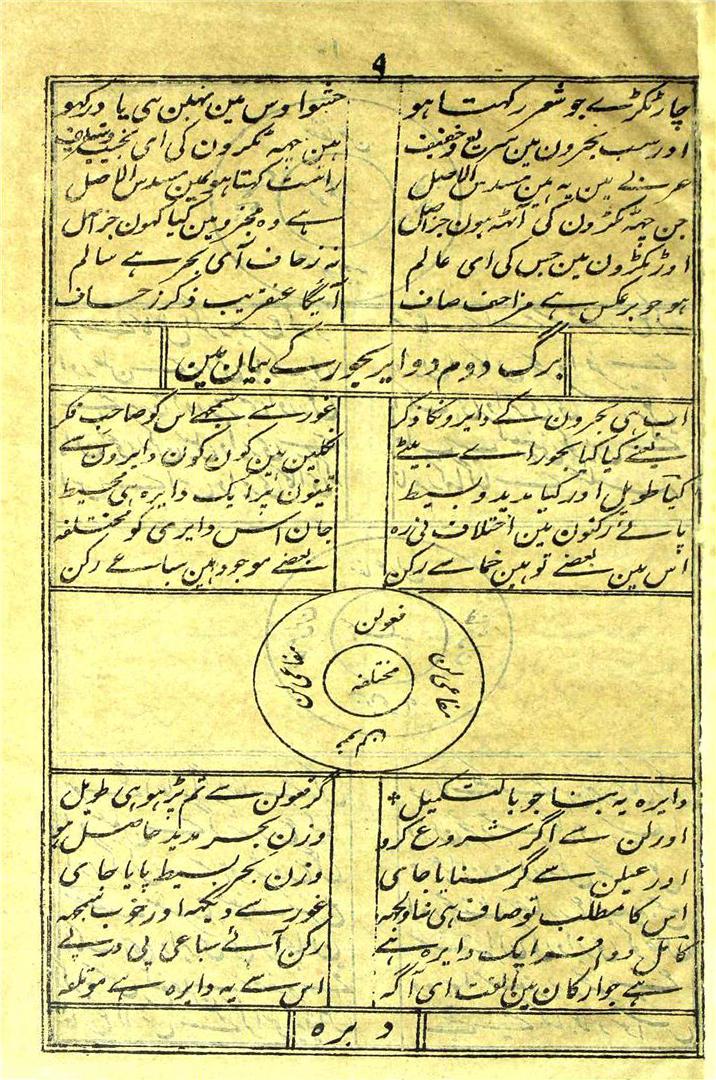 ۹
چار ٹکڑے جو شعر رکہتا ہو حشو اوس مین نہین ہی یاد رکہو
اور سب بحرون مین سریع و خفیف ہین چہہ ٹکرون کی ای نجیب و شریف
عربی مین یہ ہین مسدس الاصل راست کہتا ہو نمین مسدس الاصل
جن چہہ ٹکڑون کی آٹہہ ہون جز اصل ہے وہ مجزو مین کیا کہون جز اصل
اوڑ ٹکڑون مین جس کی ای عالم نہ زحاف آی بحر ہے سالم
ہو جو برعکس ہے مزاحف صاف آئیگا عنقریب ذکر زحاف
برگ دوم دوایر بحور کے بیان مین
اب ہی بحرون کے دایرونکا ذکر غور سے سمجہے اس کو صاحب فکر
یعنے کیا کیا بحور اے بیٹے نکلین ہین کون کون دایرون سے
کیا طویل اور کیا مدید و بسیط تینون پر ایک دایرہ ہی محیط
پائے رکنون مین اختلاف نی رہ جان اس دایری کو مختلفہ
اس مین بعضے تو ہین خماسے رکن بعضے موجود ہین سباعے رکن
فعولن
مفاعی لن
مختلفہ
مفاعی لن
دایرہ یہ بنا جو بالتشکیل گر فعولن سے تم پڑہو ہی طویل
اور لن سے اگر شروع کرو وزن بحر مدید حاصل ہو
اور عیلن سے گر سنایا جای وزن بحر بسیط پایا جای
اس کا مطلب تو صاف ہی ناولجہہ غور سے دیکہہ اور خوب سمجہہ
کامل و وافر ایک دایرہ ہے رکن آئے سباعی پی در پے
ہے جو ارکان مین الفت ای آگہ اس سے یہ دایرہ ہے موتلفہ